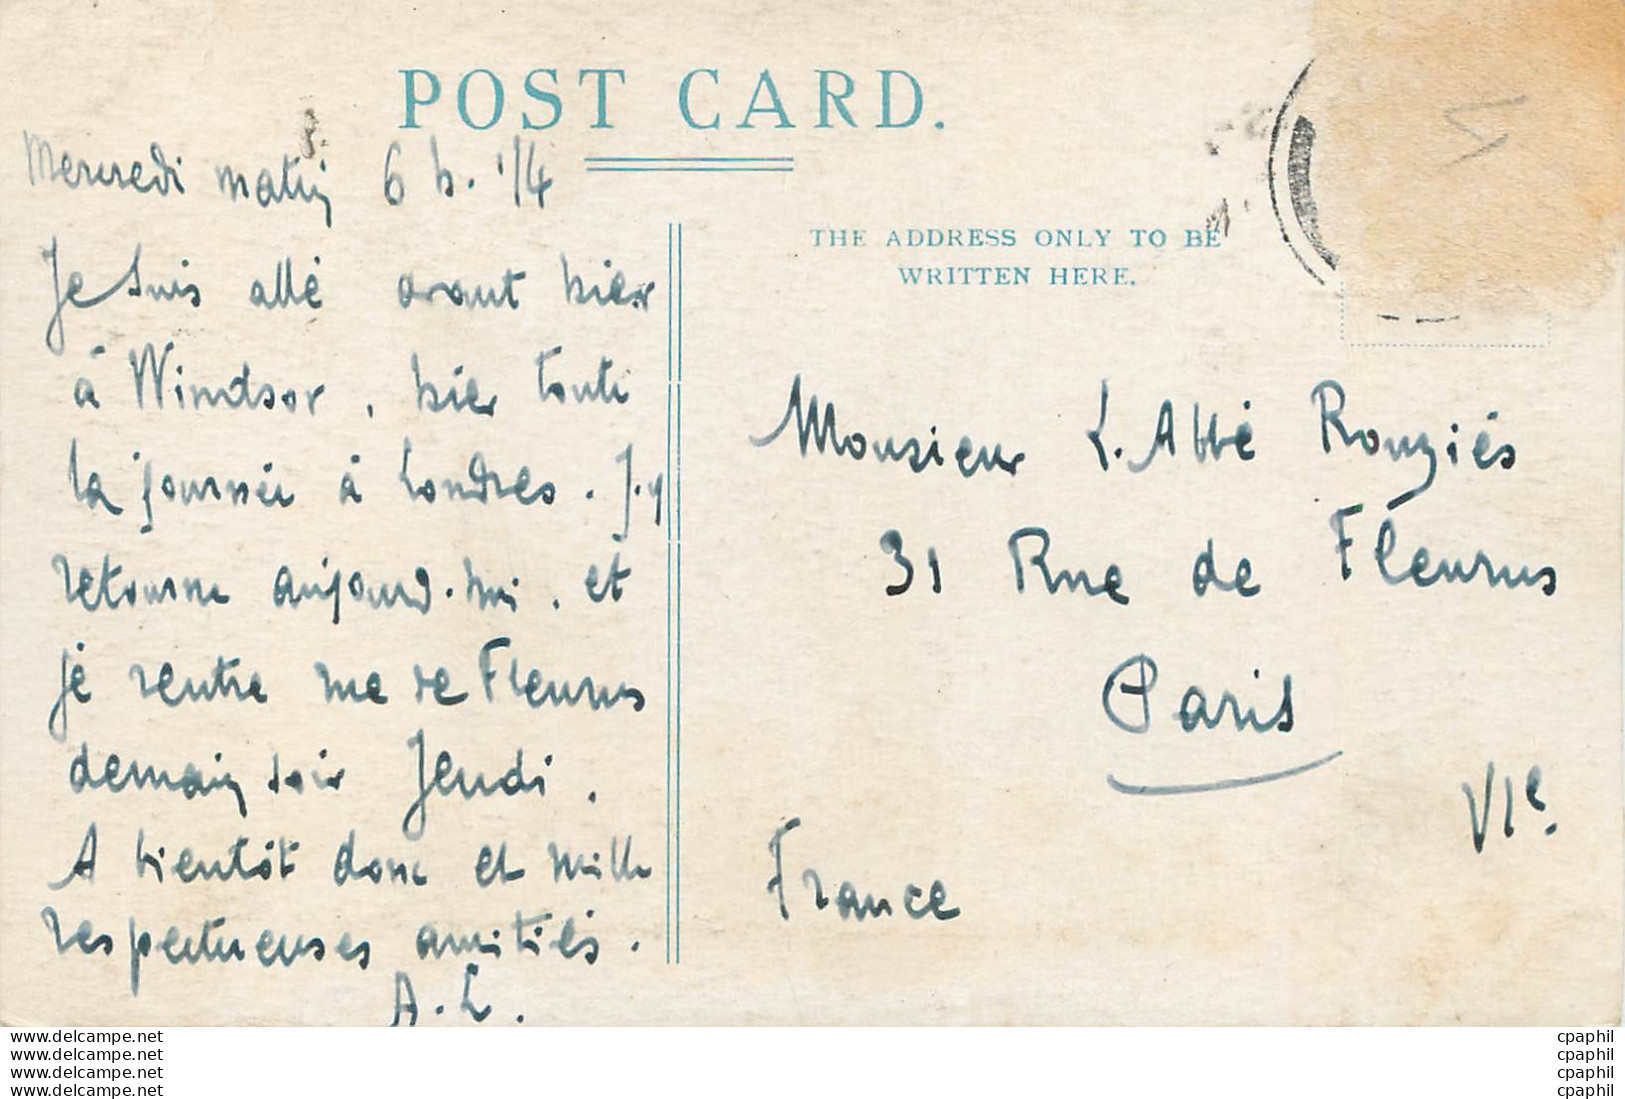 POST CARD.
Mercredi matin 6 h. 1/4
Je suis allé avant hier
à Windsor, hier toute
la journée à Londres. J'y
retourne aujourd'hui. et
je rentre rue de Fleurus
demain soir Jeudi.
A bientôt donc et mille
respectueuses amitiés.
A.L.
THE ADDRESS ONLY TO BE
WRITTEN HERE.
Monsieur L'Abbé Rouziès
31 Rue de Fleurus
Paris
VIe.
France
www.delcampe.net
www.delcampe.net
www.delcampe.net
www.delcampe.net
cpaphil
cpaphil
cpaphil
cpaphil